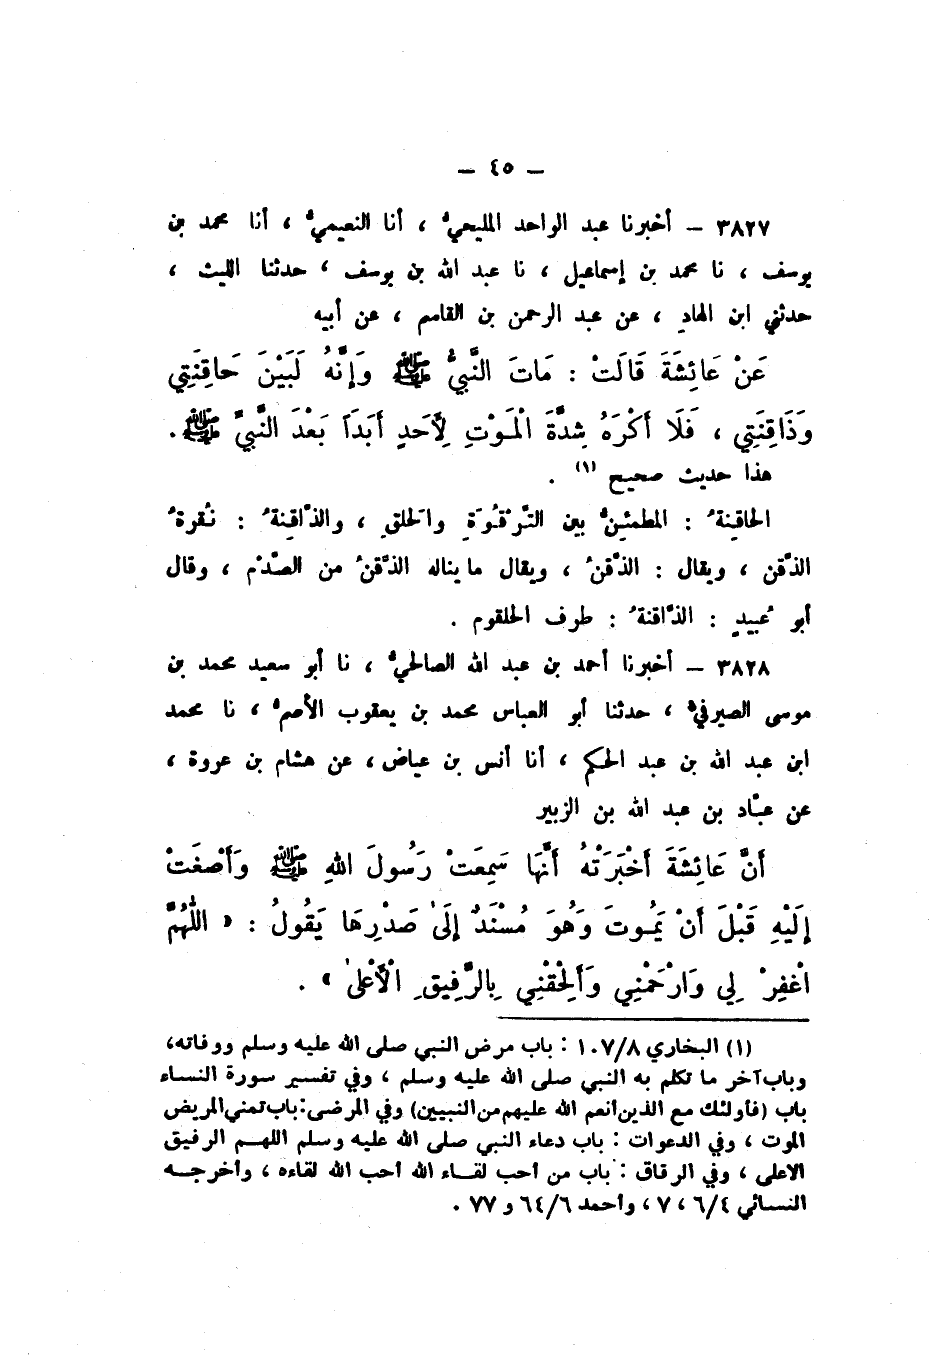 – ٤٥ –
٣٨٢٧ – أخبرنا عبد الواحد المليحيُّ ، أنا النعيميُّ ، أنا محمد بن
يوسف ، نا محمد بن إسماعيل ، نا عبد الله بن يوسف ، حدثنا الليث ،
حدثني ابن الهادِ ، عن عبد الرحمن بن القاسم ، عن أبيه
عَنْ عَائِشَةَ قَالَتْ : مَاتَ النَّبِيُّ ﷺ وَإِنَّهُ لَبَيْنَ حَاقِنَتِي
وَذَاقِنَتِي ، فَلَا أَكْرَهُ شِدَّةَ الْمَوْتِ لِأَحَدٍ أَبَدَاً بَعْدَ النَّبِيِّ ﷺ .
هذا حديث صحيح (١) .
الحاقِنةُ : المطمئِنُّ بين التَّرْقُوَةِ والحَلقِ ، والذَّاقِنةُ : نُقرةُ
الذَّقن ، ويقال : الذَّقنُ ، ويقال ما يناله الذَّقنُ من الصَّدْم ، وقال
أبو عُبيدٍ : الذَّاقنةُ : طرف الحلقوم .
٣٨٢٨ – أخبرنا أحمد بن عبد الله الصالحيُّ ، نا أبو سعيد محمد بن
موسى الصيرفيُّ ، حدثنا أبو العباس محمد بن يعقوب الأصمُّ ، نا محمد
ابن عبد الله بن عبد الحكم ، أنا أنس بن عياض ، عن هشام بن عروة ،
عن عبَّاد بن عبد الله بن الزبير
أَنَّ عَائِشَةَ أَخْبَرَتْهُ أَنَّهَا سَمِعَتْ رَسُولَ اللهِ ﷺ وَأَصْغَتْ
إِلَيْهِ قَبْلَ أَنْ يَمُوتَ وَهُوَ مُسْنَدٌ إِلَىٰ صَدْرِهَا يَقُولُ : « اللَّهُمَّ
اغْفِرْ لِي وَارْحَمْنِي وَأَلْحِقْنِي بِالرَّفِيقِ الْأَعْلىٰ » .
(١) البخاري ١٠٧/٨ : باب مرض النبي صلى الله عليه وسلم ووفاته،
وباب آخر ما تكلم به النبي صلى الله عليه وسلم ، وفي تفسير سورة النساء
باب (فأولئك مع الذين أنعم الله عليهم من النبيين) وفي المرضى: باب تمني المريض
الموت ، وفي الدعوات : باب دعاء النبي صلى الله عليه وسلم اللهم الرفيق
الاعلى ، وفي الرقاق : باب من أحب لقاء الله أحب الله لقاءه ، وأخرجه
النسائي ٦/٤ ، ٧ ، وأحمد ٦٤/٦ و ٧٧ .